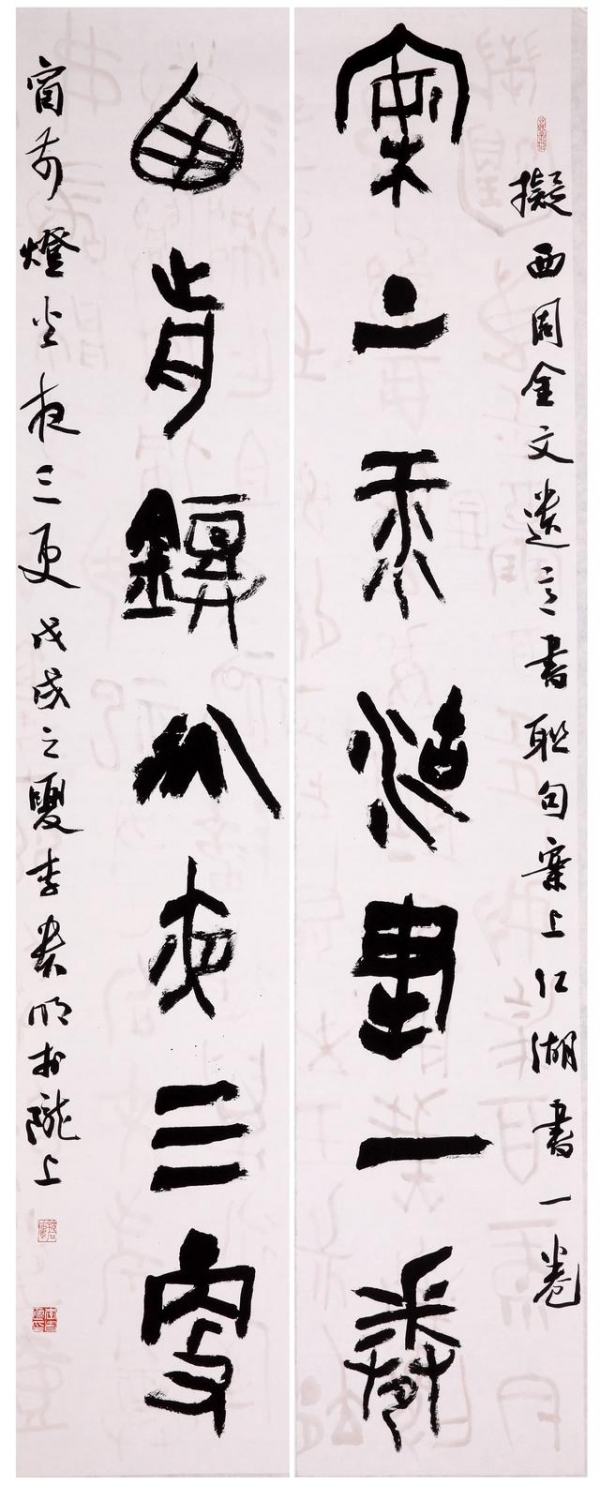 擬西周金文遗意書联句案上江湖書一卷
案上江湖書一卷
囱前鐙火夜三更
窗前燈火夜三更戊戌之夏李贵明於隴上